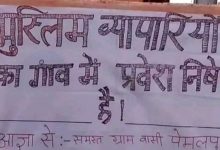 मुस्लिम व्यापारियो
का गांव में प्रवेश निषे
है।
आज्ञा से :- समस्त ग्राम वासी पेमलपु